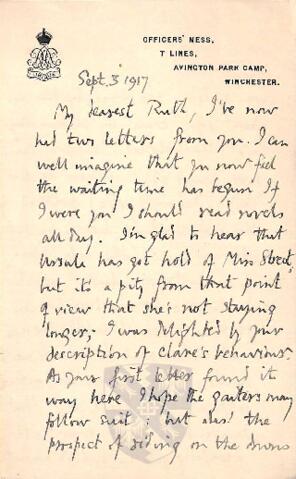 OFFICERS' NESS,
T LINES,
AVINGTON PARK CAMP,
WINCHESTER.
Sept. 3 1917
My dearest Ruth, I've now
had two letters from you. I can
well imagine that you now feel
the waiting time has begun. If
I were you I should read novels
all day. I'm glad to hear that
Ursula has got hold of Miss Street,
but it's a pity from that point
of view that she's not staying
longer;- I was delighted by your
description of Clare's behaviour.
As your first letter found its
way here I hope the gaiters may
follow suit: but alas! the
prospect of riding on the downs